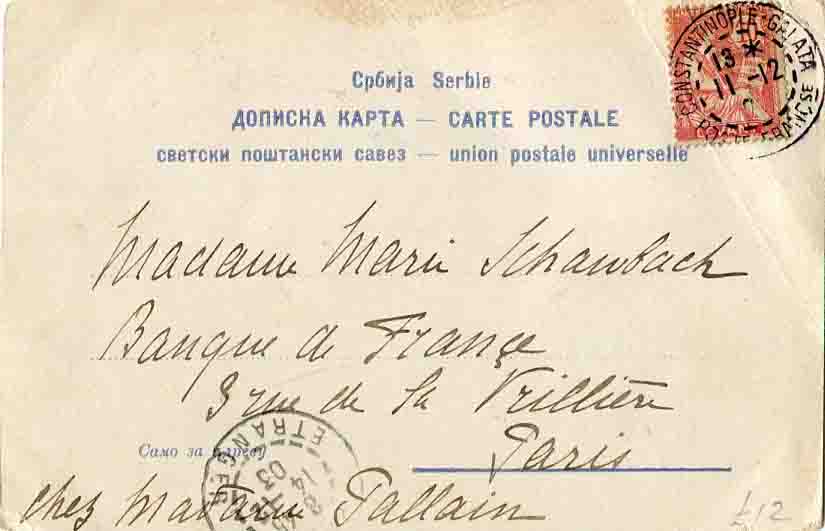 Србија Serbie
ДОПИСНА КАРТА — CARTE POSTALE
светски поштански савез — union postale universelle
CONSTANTINOPLE-GALATA
13 *
11 -12
POSTE FRANÇSE
Madame Marie Schaubach
Banque de France
3 rue de la Vrillière
Само за адресу
Paris
ETRANGER
14
03
chez Madame Pallain
£12